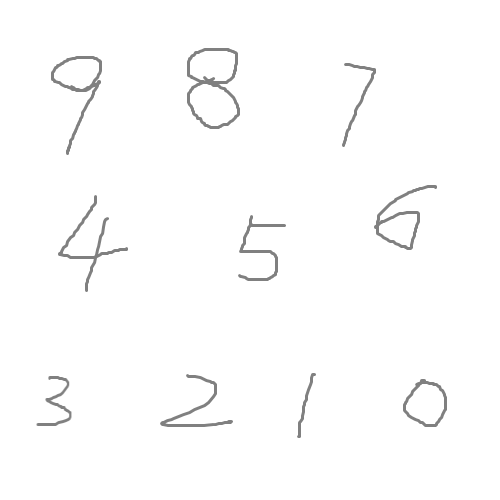 9 8 7
4 5 6
3 2 1 0